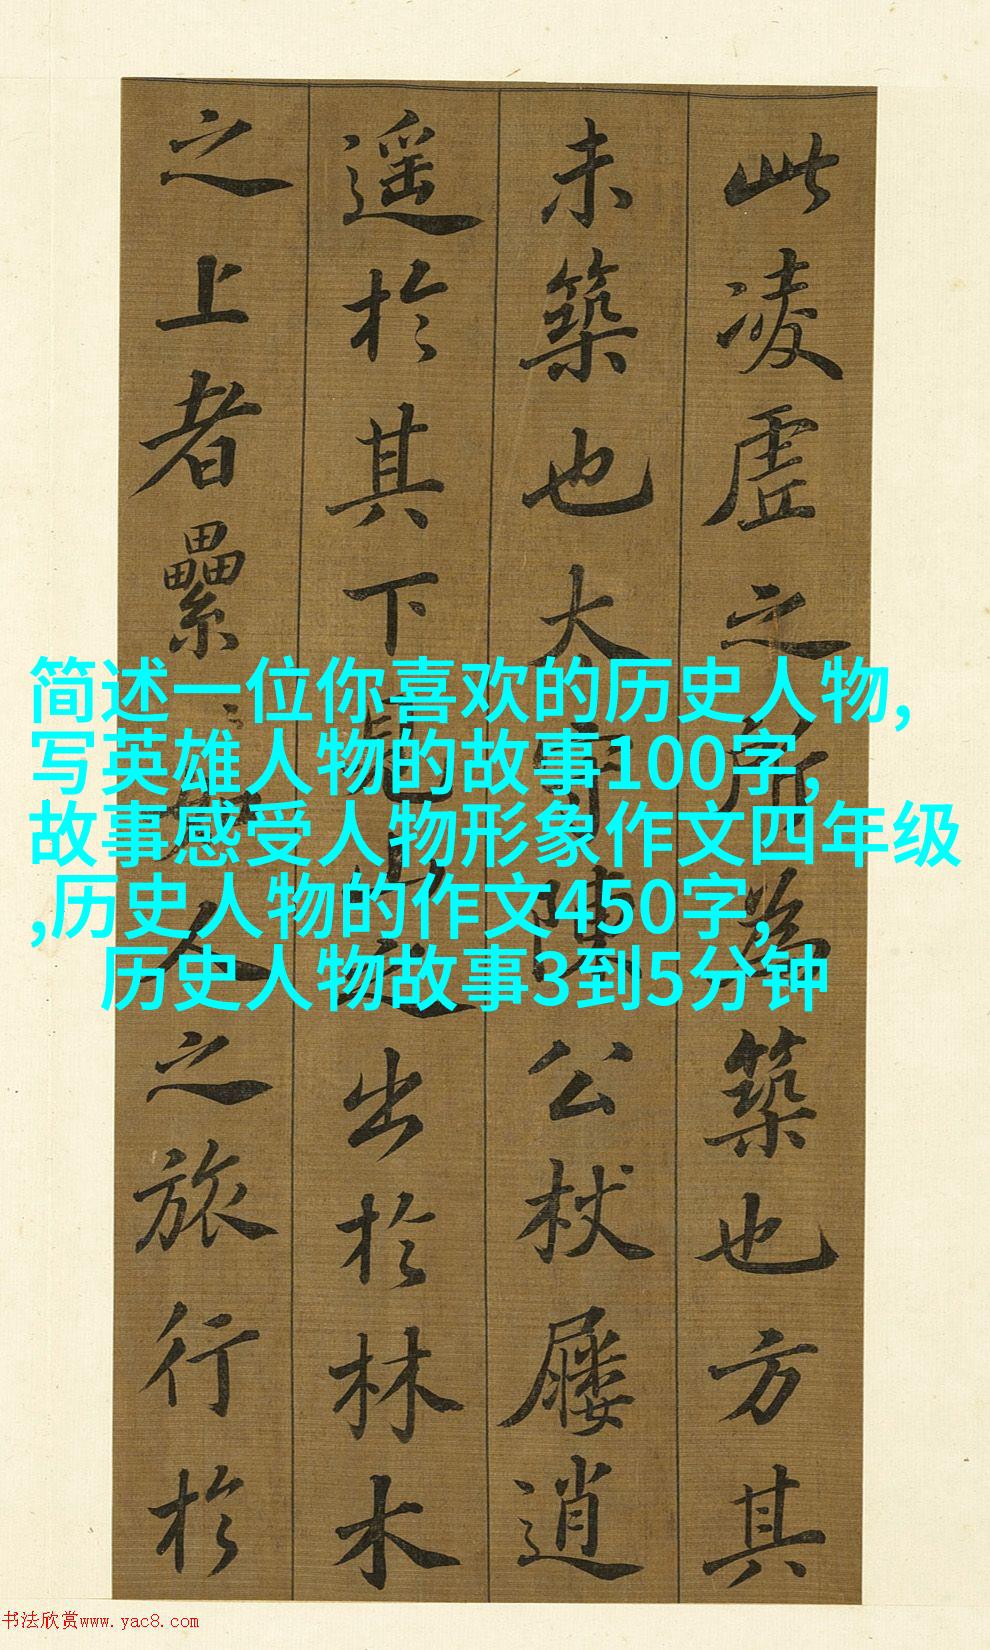 此凌虛之所為築也方其
未築也太守陳公杖屨逍
遥於其下見山之出於林木
之上者纍〻如人之旅行於
简述一位你喜欢的历史人物,
写英雄人物的故事100字,
故事感受人物形象作文四年级
,历史人物的作文450字,
历史人物故事3到5分钟
书法欣赏www.yac8.com